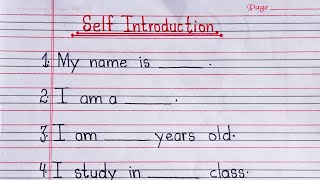 Page
Self Introduction.
1. My name is ______.
2. I am a ______.
3. I am ______ years old.
4. I study in ______ class.